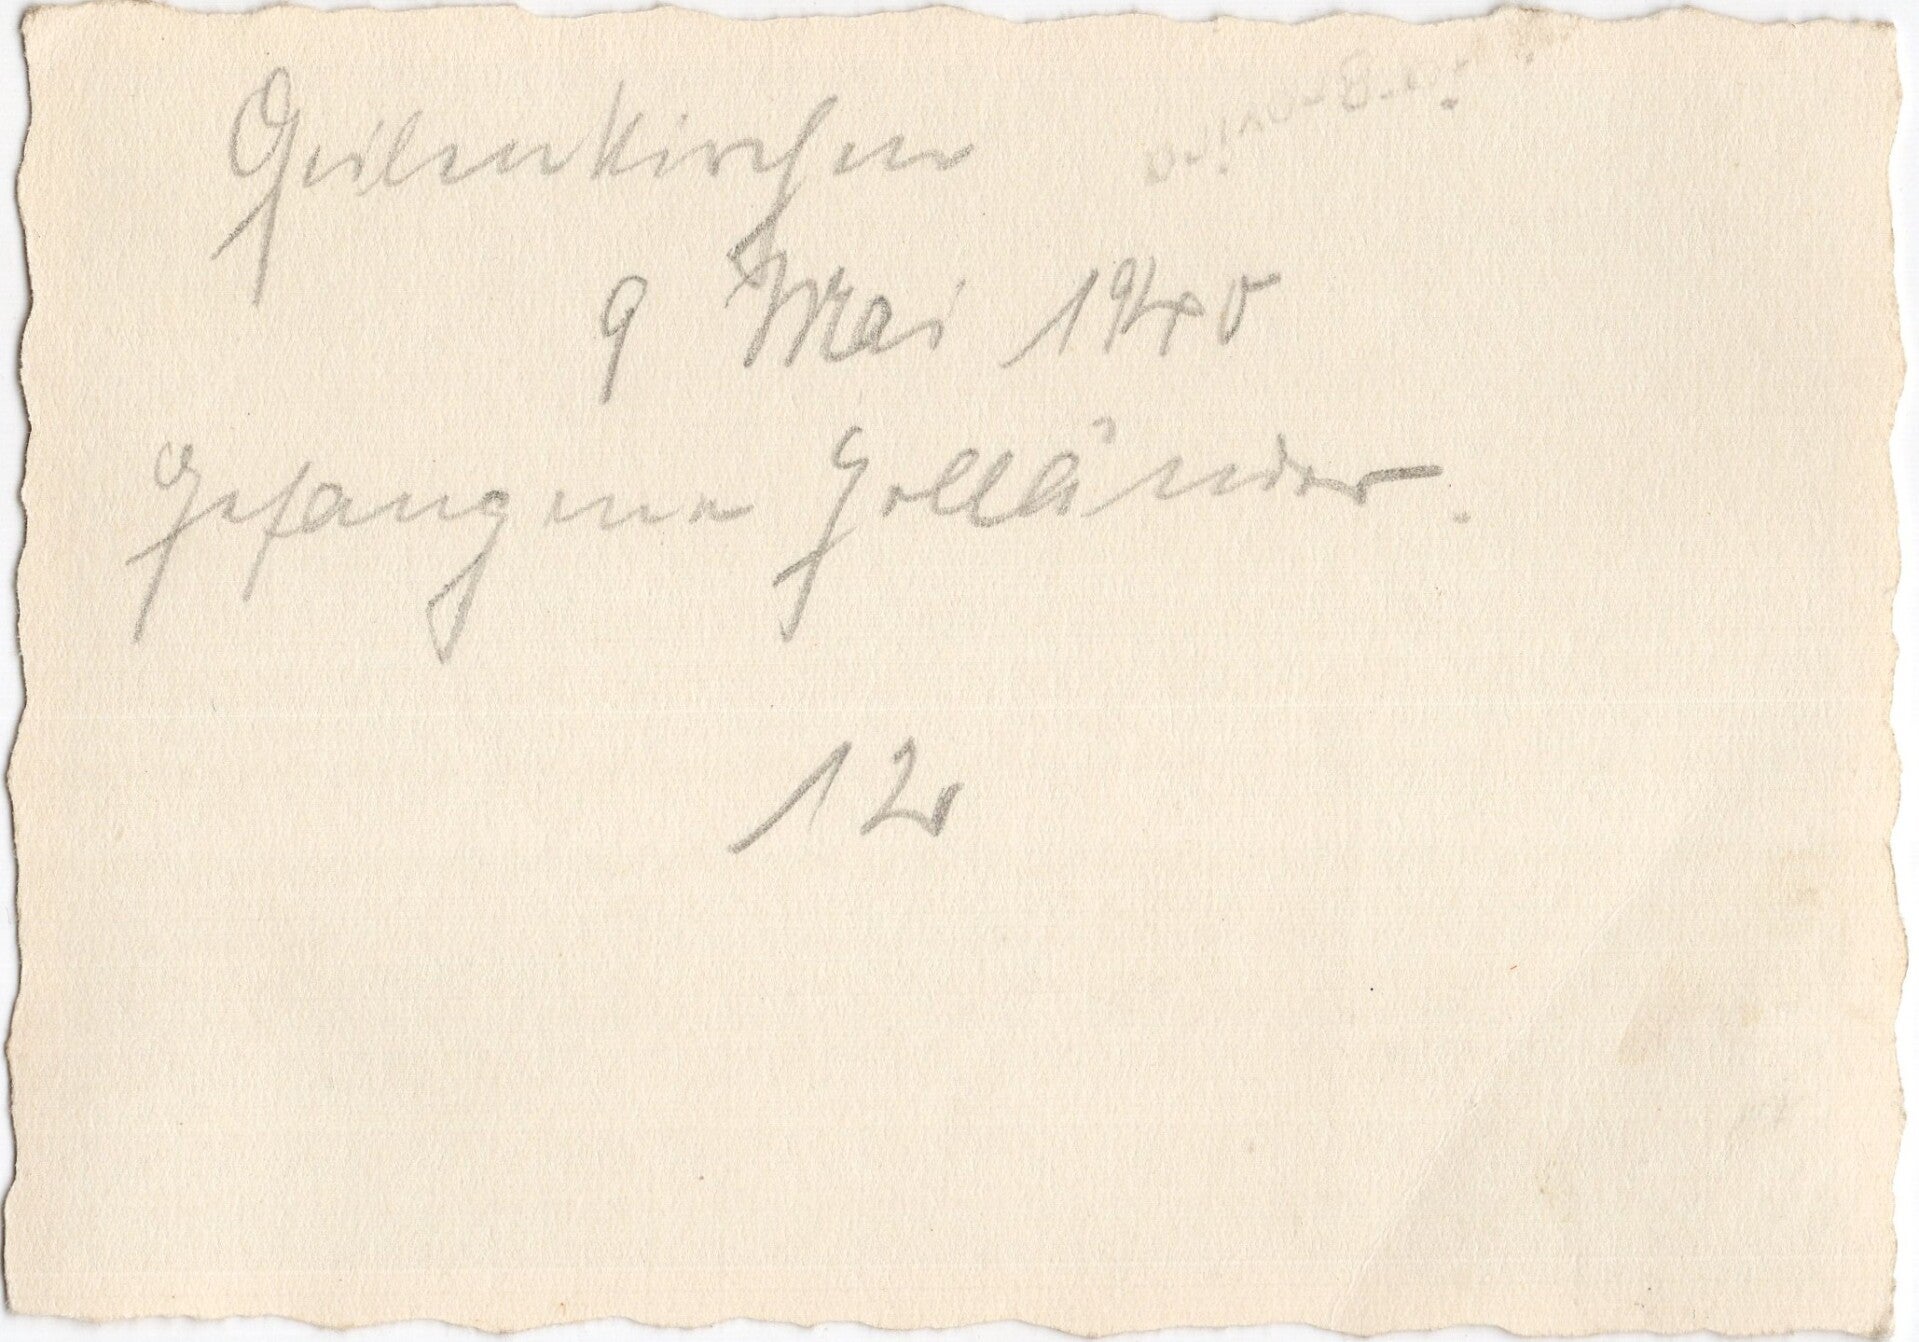 Geilenkirchen
9 Mai 1940
Gefangene Holländer.
12